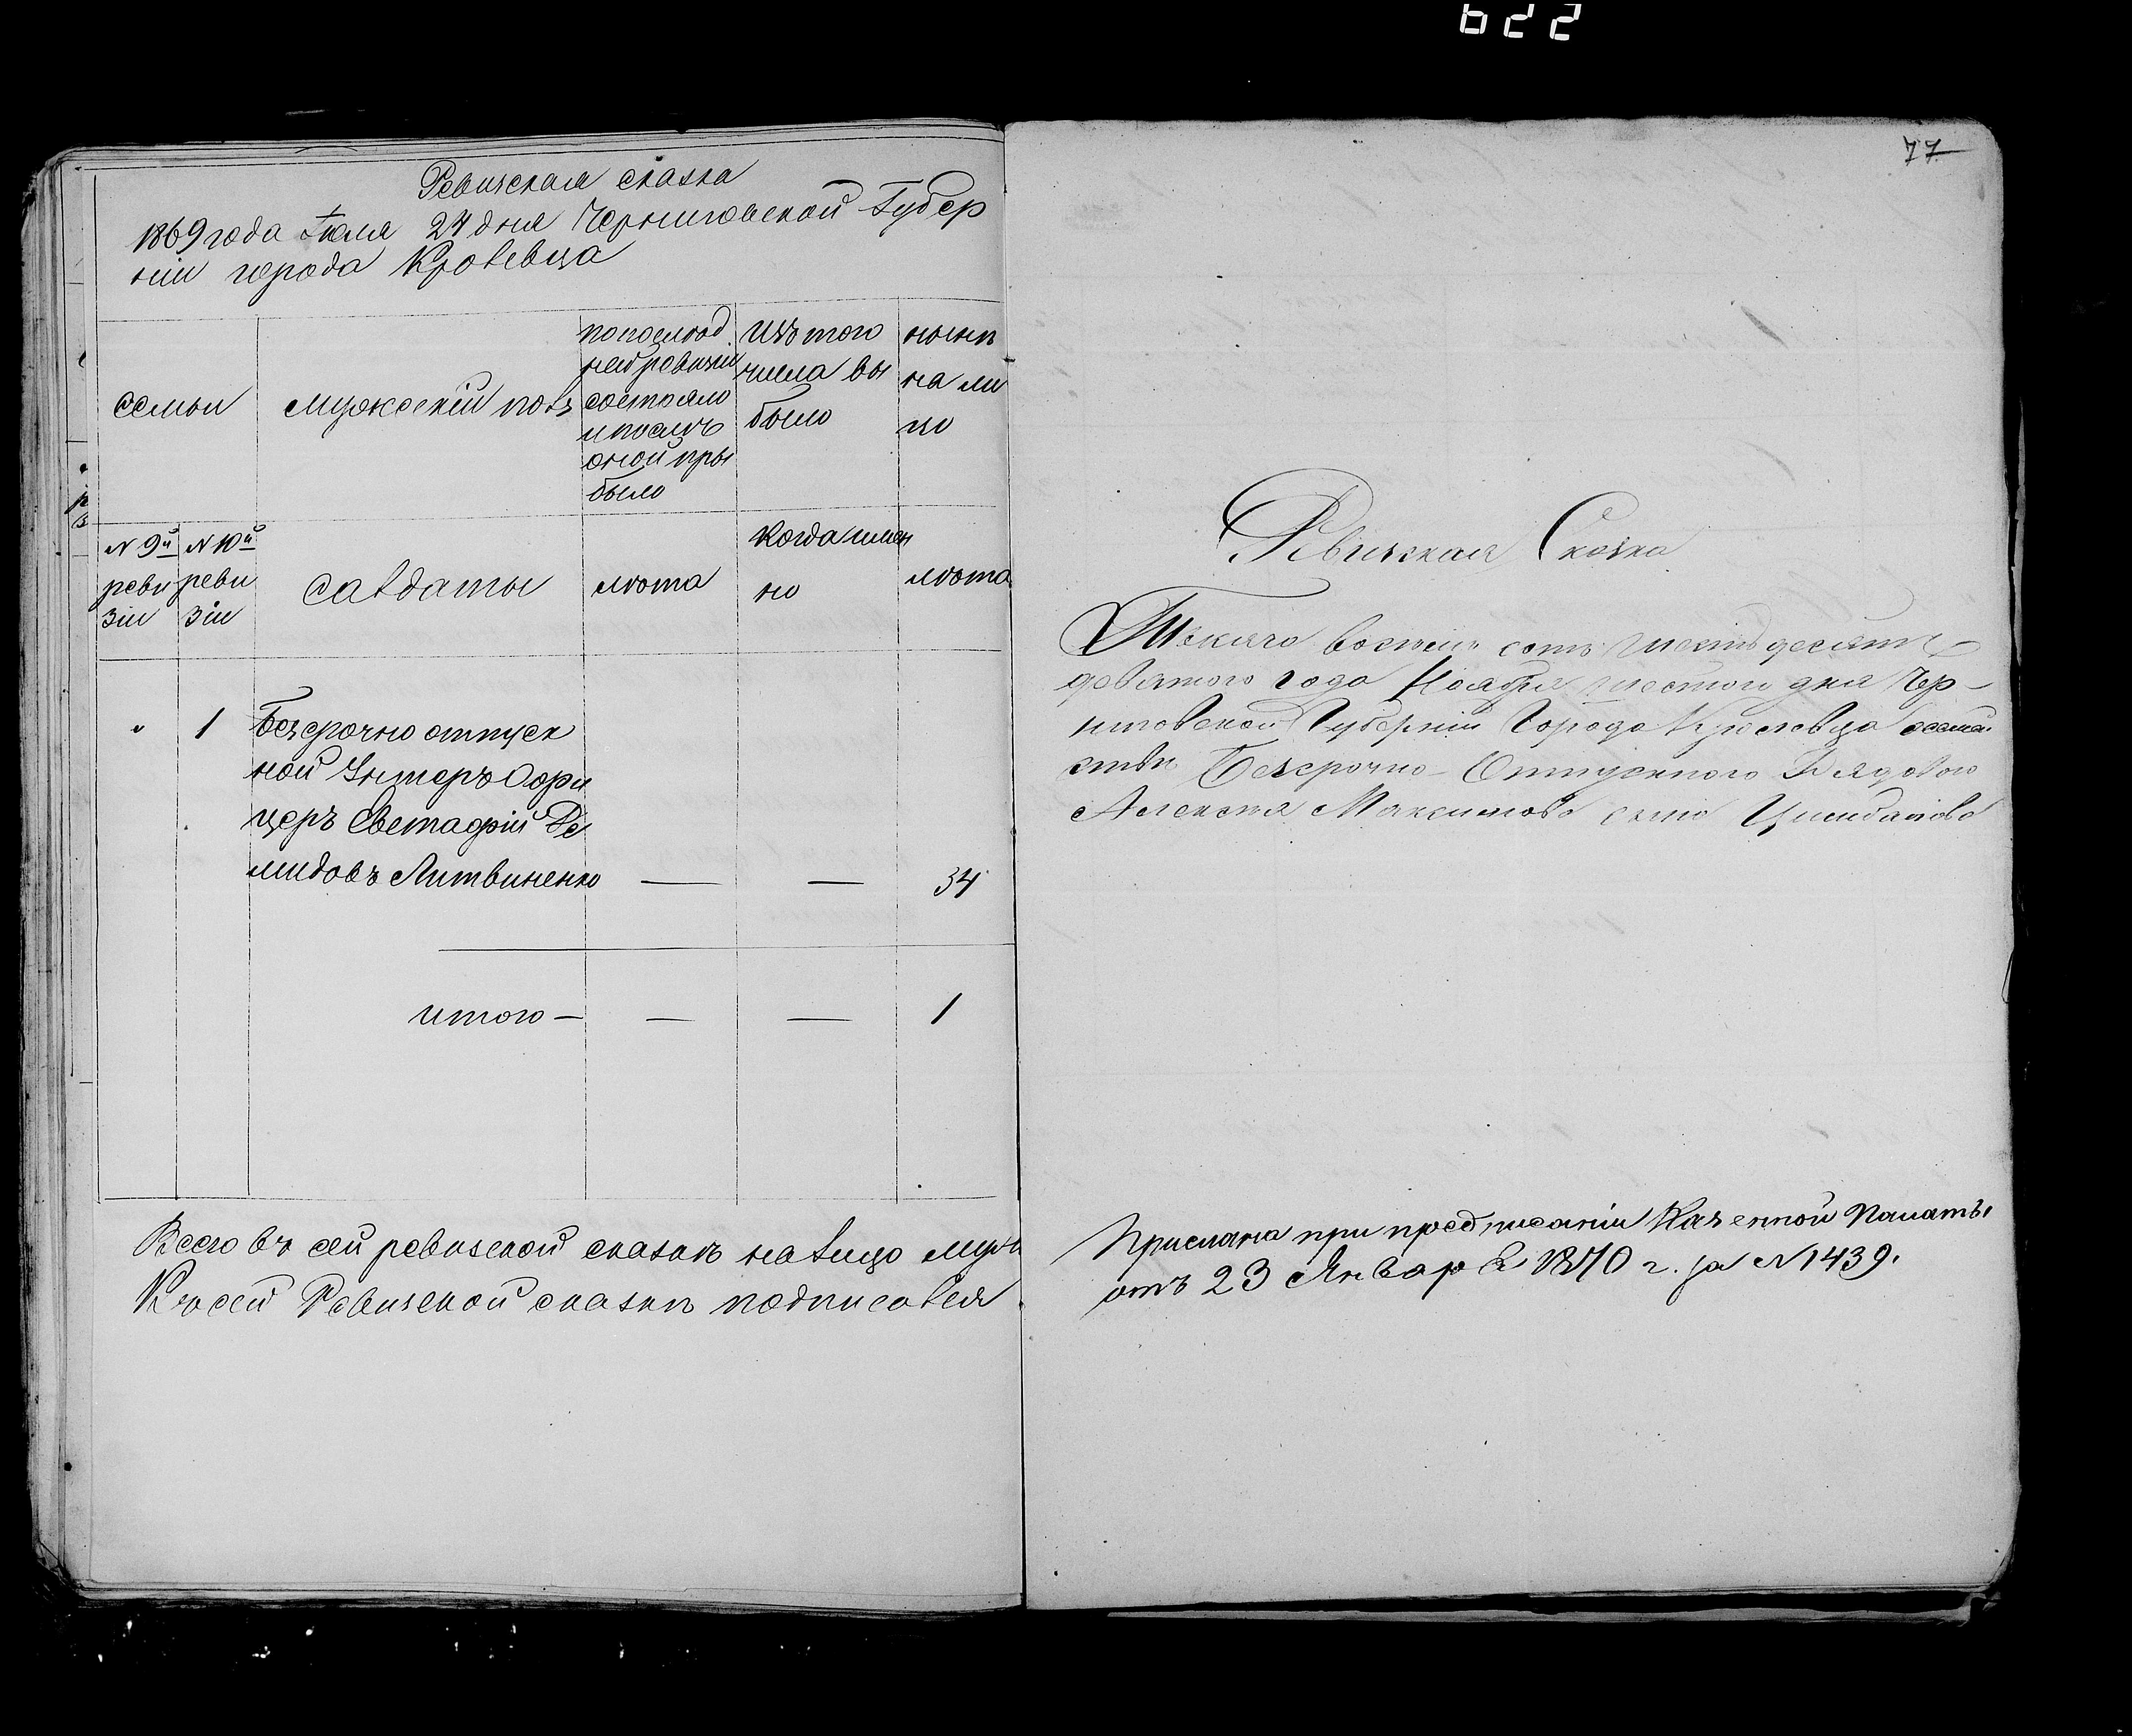 622
Ревизская сказка
1869 года Іюля 24 дня Черниговской Губер
ніи города Кролевца
семьи
мужескій полъ
по послѣд
ней ревизіи
состояло
и послѣ
оной при
было
Изъ того
числа вы
было
нынѣ
на ли
цо
N 9й
реви
зіи
N 10й
реви
зіи
Салдаты
лѣта
когда имен
но
лѣта
" 1 Безсрочно отпуск
ной Унтеръ Офи
церъ Евстафій Де
мидовъ Литвиненко — — 34
итого — — — 1
Всего въ сей ревизской сказкѣ на лицо муж
Къ сей Ревизской сказкѣ подписался
77
Ревизская Сказка
восемь сотъ шестьдесятъ
девятого года Ноября шестого дня Чер-
ниговской Губерніи Города Кролевца о семей
ствѣ Безсрочно-Отпускного Рядового
Алексѣя Максимова сына
Прислана при предписаніи Казенной Палаты
отъ 23 Января 1870 г. за N 1439.